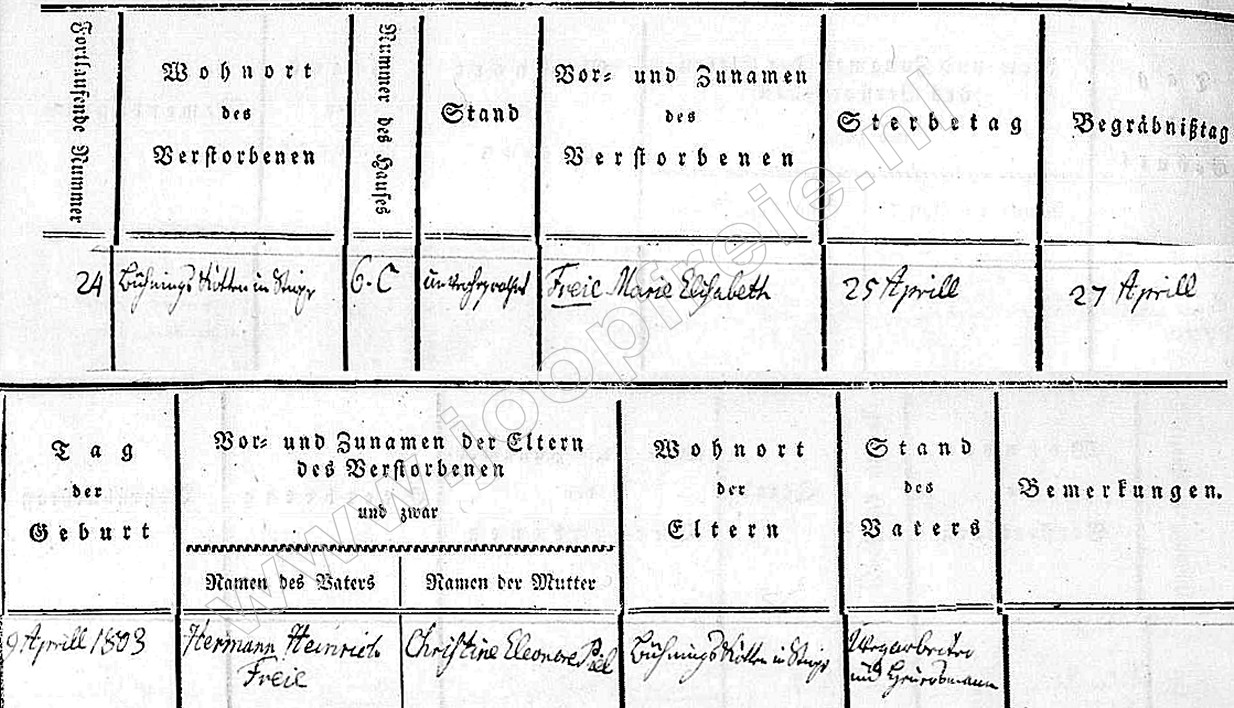 Fortlaufende Nummer
Wohnort
des
Verstorbenen
Nummer des Hauses
Stand
Vor- und Zunamen
des
Verstorbenen
Sterbetag
Begräbnißtag
24
in
6-C
Freie Marie Elisabeth
25 Aprill
27 Aprill
Tag
der
Geburt
Vor- und Zunamen der Eltern
des Verstorbenen
und zwar
Namen des Vaters
Namen der Mutter
Wohnort
der
Eltern
Stand
des
Vaters
Bemerkungen.
9 Aprill 1803
Hermann Heinrich
Freie
Christine Eleonore Piel
in
und
www.joopfreie.nl